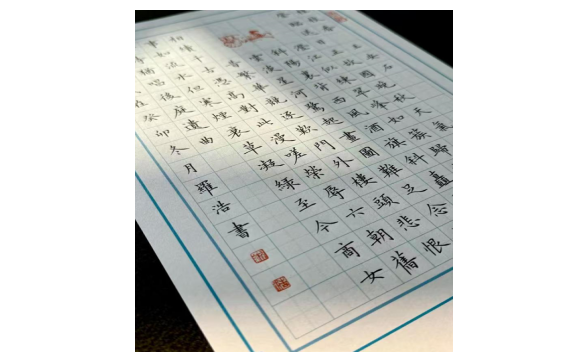 正故國晚秋天氣
澄江似練翠峰如簇歸
斜陽裏背西風酒旗斜矗
雲淡星河鷺起畫圖難足念
繁華競逐歎門外樓頭悲恨
相續千古憑高對此漫嗟榮辱六朝舊
事如流水但寒煙衰草凝綠至今商女
猶唱後庭遺曲
癸卯冬月羅浩書